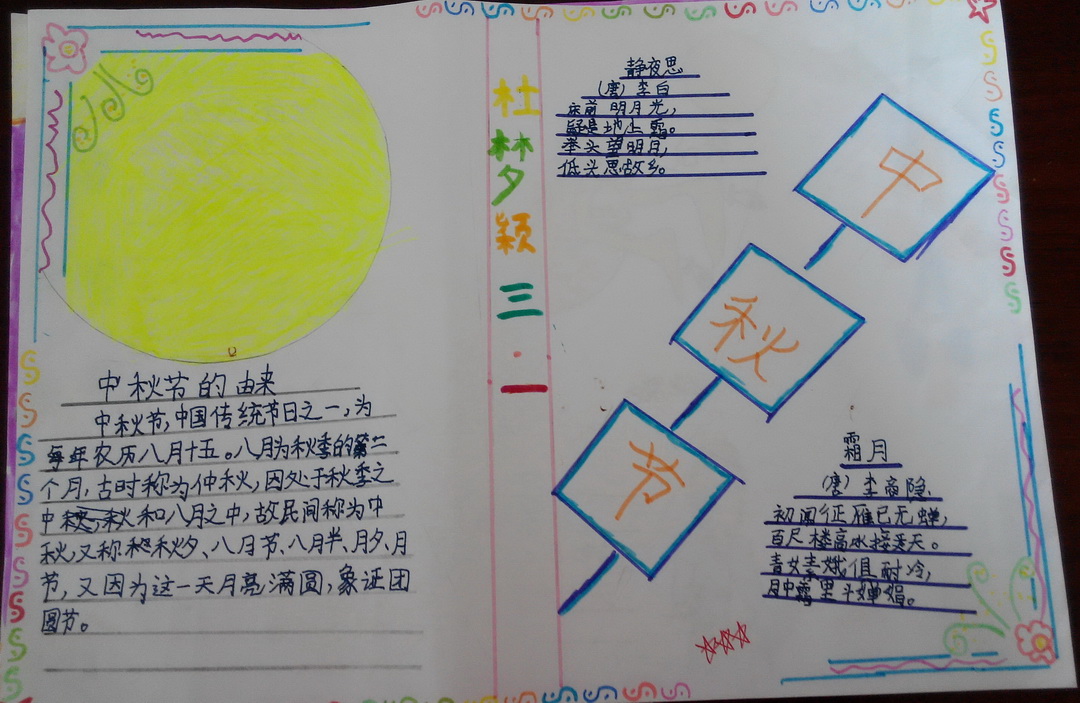 中秋节的由来
中秋节,中国传统节日之一,为
每年农历八月十五。八月为秋季的第二
个月,古时称为仲秋,因处于秋季之
中,秋和八月之中,故民间称为中
秋,又称秋夕、八月节、八月半、月夕、月
节,又因为这一天月亮满圆,象证团
圆节。
杜梦颖 三·一
静夜思
(唐) 李白
床前明月光,
疑是地上霜。
举头望明月,
低头思故乡。
中
秋
节
霜月
(唐) 李商隐
初闻征雁已无蝉,
百尺楼高水接天。
青女素娥俱耐冷,
月中霜里斗婵娟。